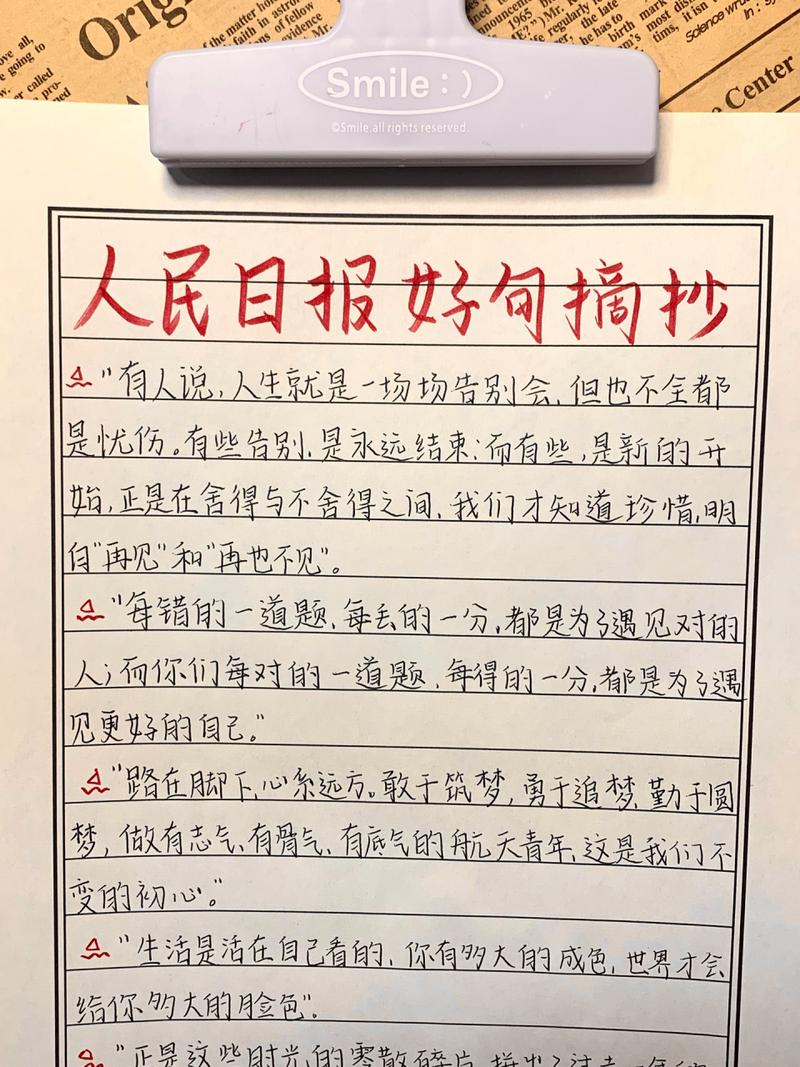 Orig
Smile:)
©Smile.all rights reserved.
Science wr
e Center
人民日报好句摘抄
"有人说,人生就是一场场告别会,但也不全都
是忧伤。有些告别,是永远结束;而有些,是新的开
始,正是在舍得与不舍得之间,我们才知道珍惜,明
白"再见"和"再也不见"。
"每错的一道题,每丢的一分,都是为了遇见对的
人;而你们每对的一道题,每得的一分,都是为了遇
见更好的自己。"
"路在脚下,心系远方。敢于筑梦,勇于追梦,勤于圆
梦,做有志气、有骨气、有底气的航天青年,这是我们不
变的初心。"
"生活是活在自己看的,你有多大的成色,世界才会
给你多大的脸色"。
"正是这些时光的零散碎片,拼出了过去一年的